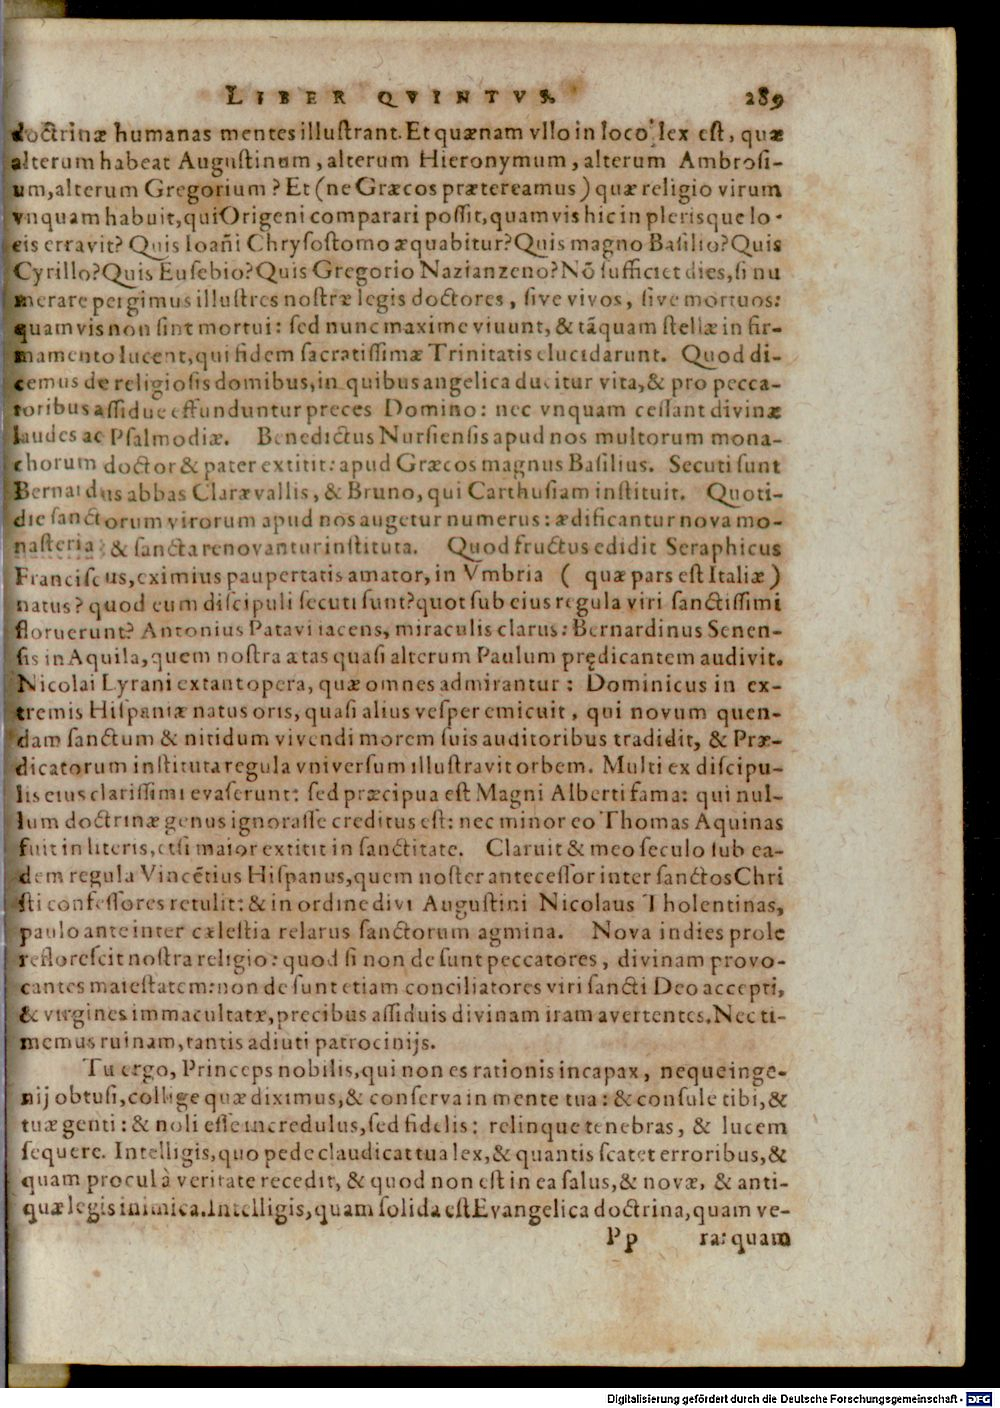 LIBER QVINTVS. 289
doctrinæ humanas mentes illuſtrant. Et quænam vllo in loco lex eſt, quæ
alterum habeat Auguſtinum, alterum Hieronymum, alterum Ambroſi-
um, alterum Gregorium? Et (ne Græcos prætereamus) quæ religio virum
vnquam habuit, qui Origeni comparari poſſit, quamvis hic in plerisque lo-
cis erravit? Quis Ioañi Chryſoſtomo æquabitur? Quis magno Baſilio? Quis
Cyrillo? Quis Euſebio? Quis Gregorio Nazianzeno? Nõ ſufficiet dies, ſi nu
merare pergimus illuſtres noſtræ legis doctores, ſive vivos, ſive mortuos:
quamvis non ſint mortui: ſed nunc maxime viuunt, & tãquam ſtellæ in fir-
mamento lucent, qui fidem ſacratiſſimæ Trinitatis elucidarunt. Quod di-
cemus de religioſis domibus, in quibus angelica ducitur vita, & pro pecca-
toribus aſſidue effunduntur preces Domino: nec vnquam ceſſant divinæ
laudes ac Pſalmodiæ. Benedictus Nurſienſis apud nos multorum mona-
chorum doctor & pater extitit: apud Græcos magnus Baſilius. Secuti ſunt
Bernardus abbas Claræ vallis, & Bruno, qui Carthuſiam inſtituit. Quoti-
die ſanctorum virorum apud nos augetur numerus: ædificantur nova mo-
naſteria: & ſancta renovantur inſtituta. Quod fructus edidit Seraphicus
Franciſcus, eximius paupertatis amator, in Vmbria ( quæ pars eſt Italiæ )
natus? quod eum diſcipuli ſecuti ſunt? quot ſub eius regula viri ſanctiſſimi
floruerunt? Antonius Patavi iacens, miraculis clarus: Bernardinus Senen-
ſis in Aquila, quem noſtra ætas quaſi alterum Paulum prędicantem audivit.
Nicolai Lyrani extant opera, quæ omnes admirantur: Dominicus in ex-
tremis Hiſpaniæ natus oris, quaſi alius veſper emicuit, qui novum quen-
dam ſanctum & nitidum vivendi morem ſuis auditoribus tradidit, & Præ-
dicatorum inſtituta regula vniverſum illuſtravit orbem. Multi ex diſcipu-
lis eius clariſſimi evaſerunt: ſed præcipua eſt Magni Alberti fama: qui nul-
lum doctrinæ genus ignoraſſe creditus eſt: nec minor eo Thomas Aquinas
fuit in literis, etſi maior extitit in ſanctitate. Claruit & meo ſeculo ſub ea-
dem regula Vincẽtius Hiſpanus, quem noſter anteceſſor inter ſanctos Chri
ſti confeſſores retulit: & in ordine divi Auguſtini Nicolaus Tholentinas,
paulo ante inter cæleſtia relarus ſanctorum agmina. Nova indies prole
refloreſcit noſtra religio: quod ſi non deſunt peccatores, divinam provo-
cantes maieſtatem: non deſunt etiam conciliatores viri ſancti Deo accepti,
& virgines immacultatæ, precibus aſſiduis divinam iram avertentes. Nec ti-
memus ruinam, tantis adiuti patrocinijs.
Tu ergo, Princeps nobilis, qui non es rationis incapax, neque inge-
nij obtuſi, collige quæ diximus, & conſerva in mente tua: & conſule tibi, &
tuæ genti: & noli eſſe incredulus, ſed fidelis: relinque tenebras, & lucem
ſequere. Intelligis, quo pede claudicat tua lex, & quantis ſcatet erroribus, &
quam procul à veritate recedit, & quod non eſt in ea ſalus, & novæ, & anti-
quæ legis inimica. Intelligis, quam ſolida eſt Evangelica doctrina, quam ve-
Pp ra: quam
Digitalisierung gefördert durch die Deutsche Forschungsgemeinschaft - DFG